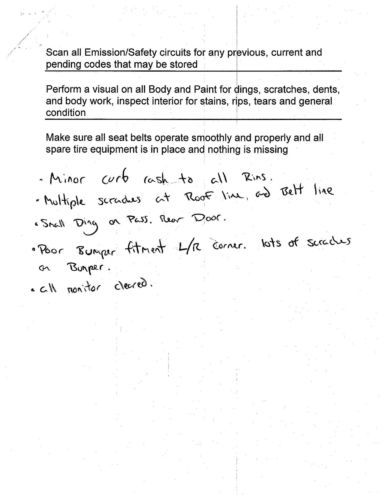 Scan all Emission/Safety circuits for any previous, current and
pending codes that may be stored
Perform a visual on all Body and Paint for dings, scratches, dents,
and body work, inspect interior for stains, rips, tears and general
condition
Make sure all seat belts operate smoothly and properly and all
spare tire equipment is in place and nothing is missing
- Minor curb rash to all Rims.
• Multiple scraches at Roof line, and Belt line
• Small Ding on Pass. Rear Door.
• Poor Bumper fitment L/R corner. lots of scraches
on Bumper.
• all monitor cleared.